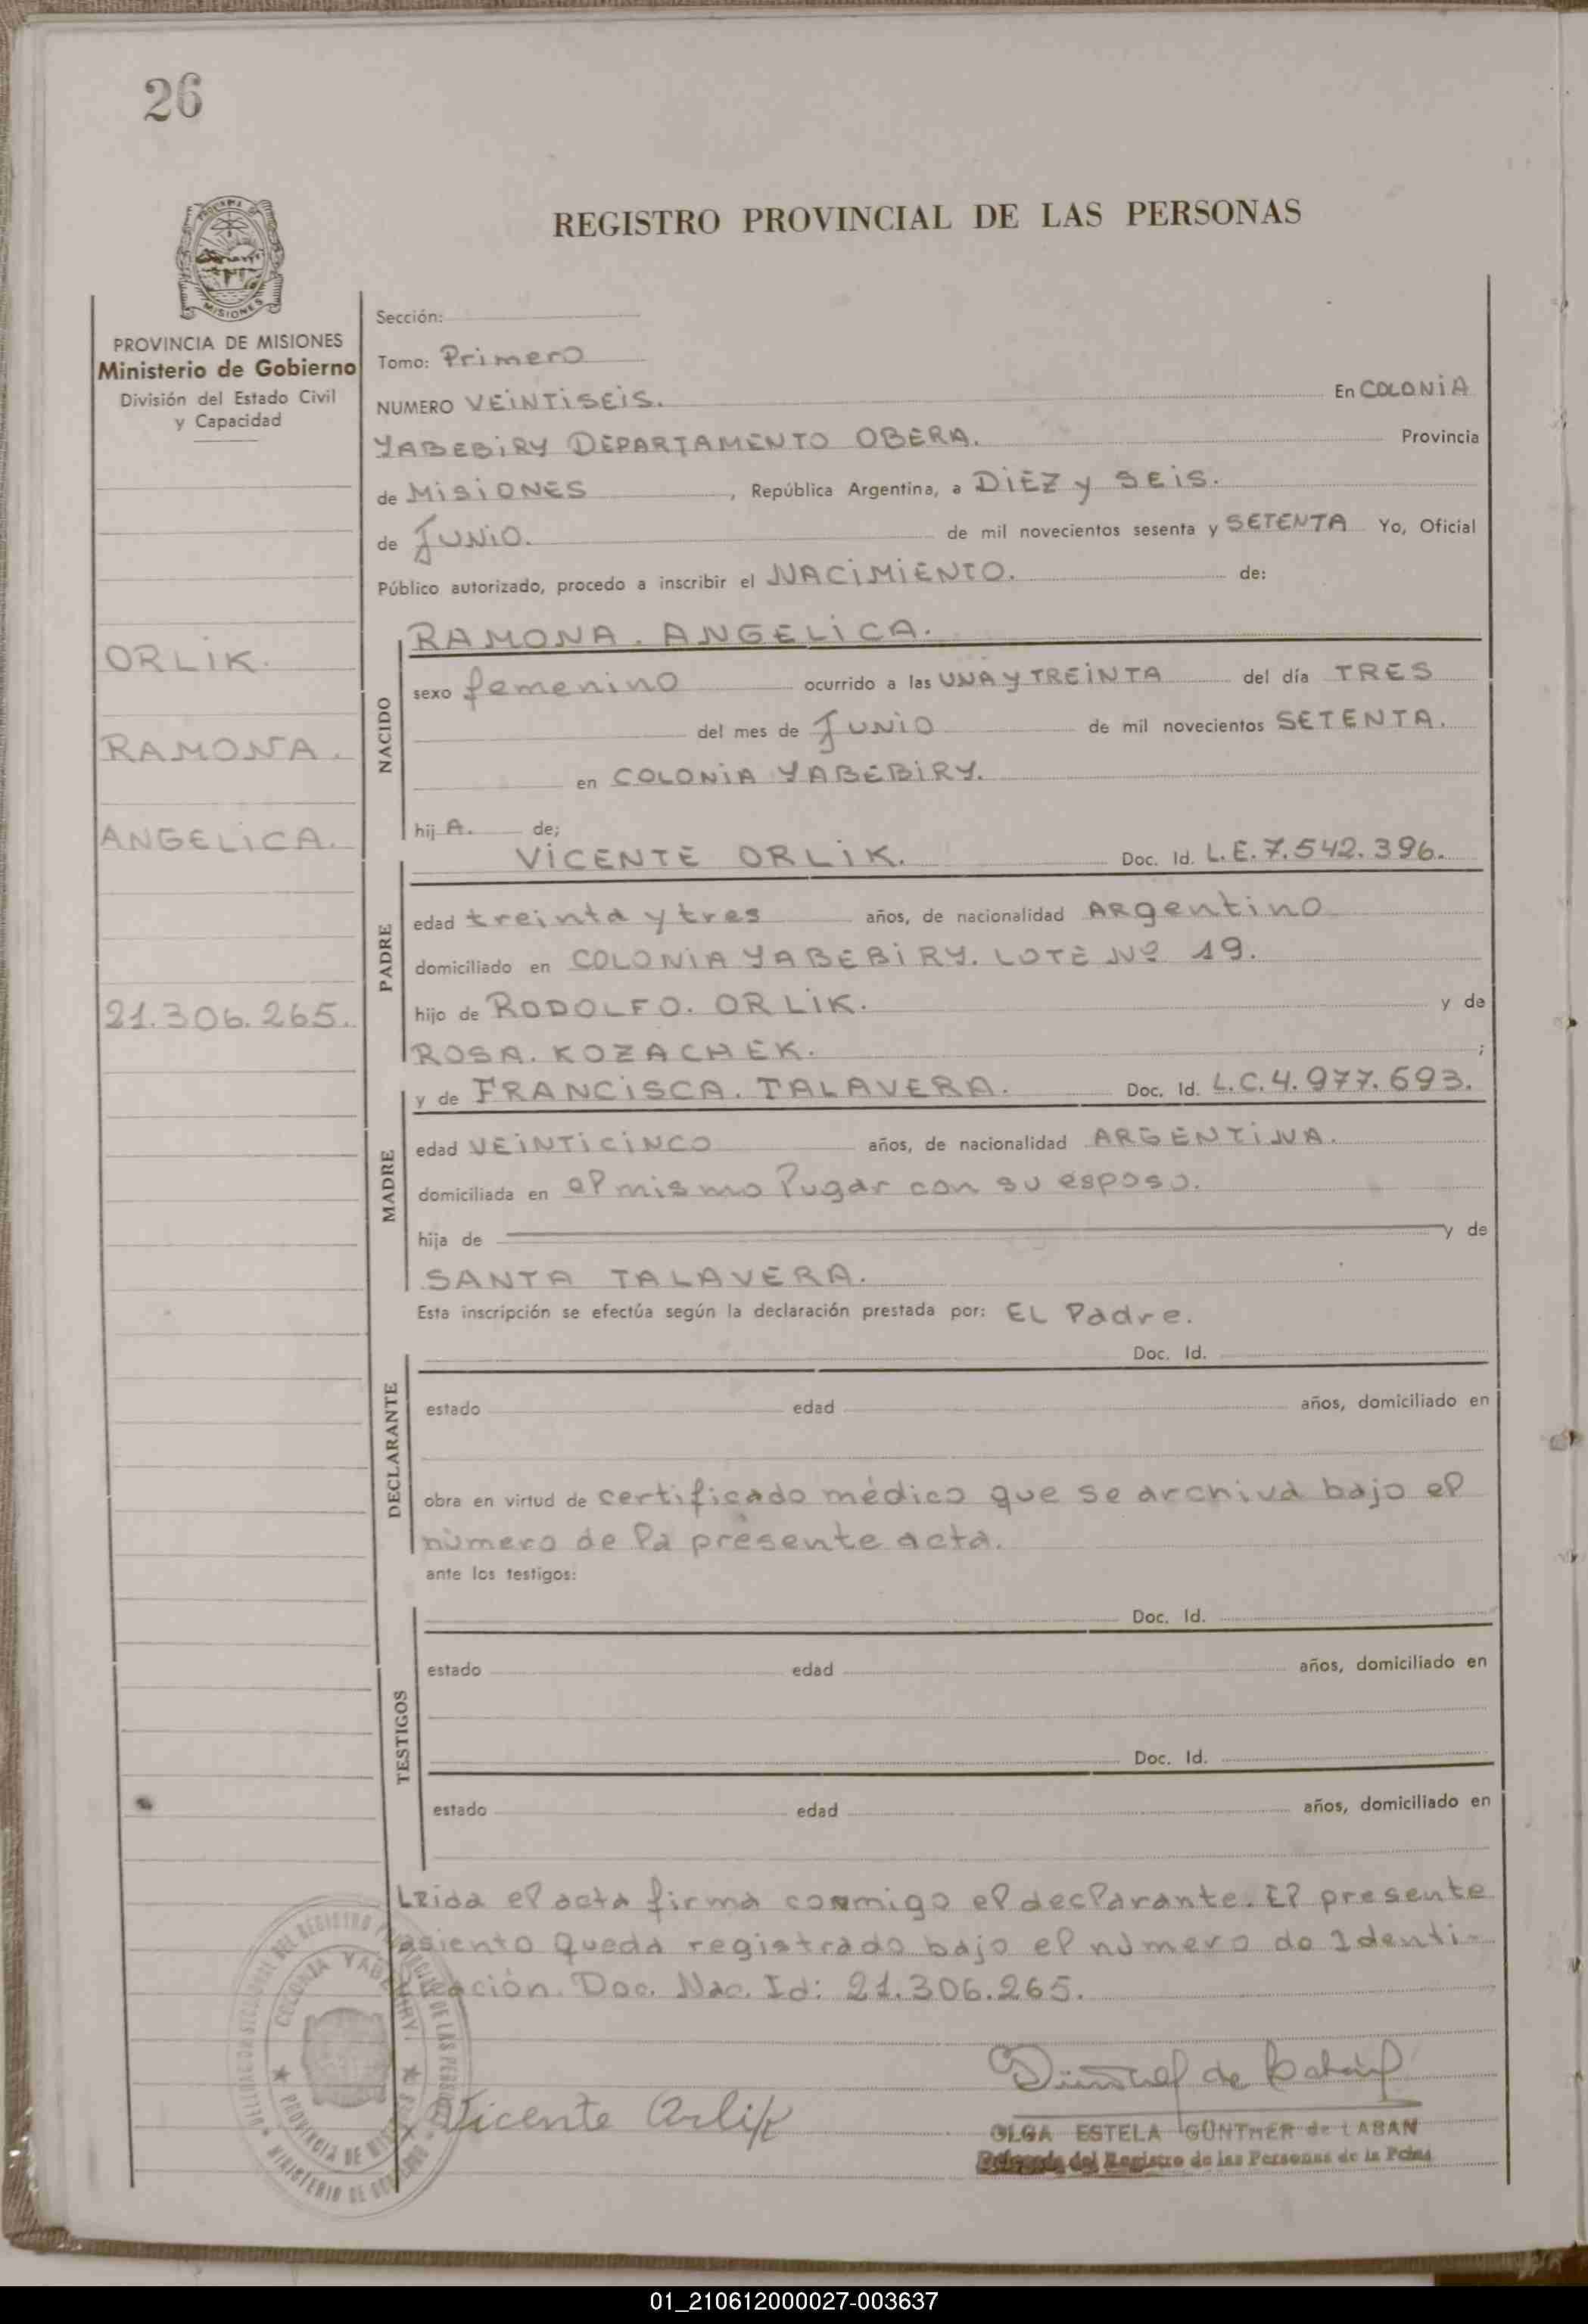 26
REGISTRO PROVINCIAL DE LAS PERSONAS
PROVINCIA DE MISIONES
Ministerio de Gobierno
División del Estado Civil
y Capacidad
ORLIK.
RAMONA.
ANGELICA.
21.306.265.
Sección:
Tomo: Primero
NUMERO VEINTISEIS. En COLONIA
YABEBIRY DEPARTAMENTO OBERA. Provincia
de MISIONES, República Argentina, a DIEZ y SEIS.
de JUNIO. de mil novecientos sesenta y SETENTA Yo, Oficial
Público autorizado, procedo a inscribir el NACIMIENTO. de:
NACIDO
RAMONA. ANGELICA.
sexo femenino ocurrido a las UNA Y TREINTA del día TRES
del mes de JUNIO de mil novecientos SETENTA.
en COLONIA YABEBIRY.
hij A. de;
PADRE
VICENTE ORLIK. Doc. Id. L.E. 7.542.396.
edad treinta y tres años, de nacionalidad ARgentino
domiciliado en COLONIA YABEBIRY. LOTE Nº 19.
hijo de RODOLFO. ORLIK. y de
ROSA. KOZACHEK. ;
MADRE
y de FRANCISCA. TALAVERA. Doc. Id. L.C. 4.977.693.
edad VEINTICINCO años, de nacionalidad ARGENTINA.
domiciliada en el mismo lugar con su esposo.
hija de y de
SANTA TALAVERA.
Esta inscripción se efectúa según la declaración prestada por: EL Padre.
DECLARANTE
Doc. Id.
estado edad años, domiciliado en
obra en virtud de certificado médico que se archiva bajo el
número de la presente acta.
ante los testigos:
TESTIGOS
Doc. Id.
estado edad años, domiciliado en
Doc. Id.
estado edad años, domiciliado en
Leida el acta firma conmigo el declarante. El presente
asiento queda registrado bajo el número do Identi-
cación. Doc. Nac. Id: 21.306.265.
COLONIA YABEBIRY
PROVINCIA DE MISIONES
MINISTERIO DE GOBIERNO
Vicente Orlik
OLGA ESTELA GÜNTHER de LABAN
Delegada del Registro de las Personas de la Pcia.
01_210612000027-003637